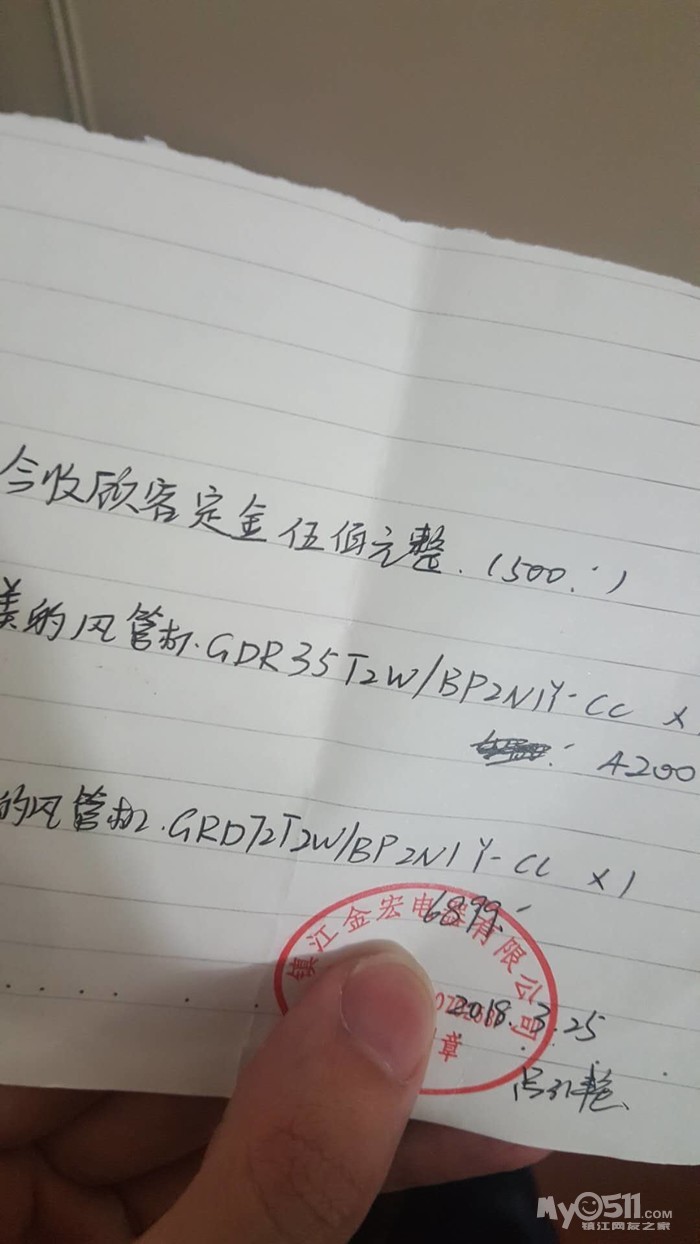 今收顾客定金伍佰元整.(500.-)
美的风管机.GDR35T2W/BP2N1Y-CC ×
4200
的风管机.GRD72T2W/BP2N1Y-CC ×1
6899.-
镇江金宏电器有限公司
章
2018.3.25
My0511.com
镇江网友之家